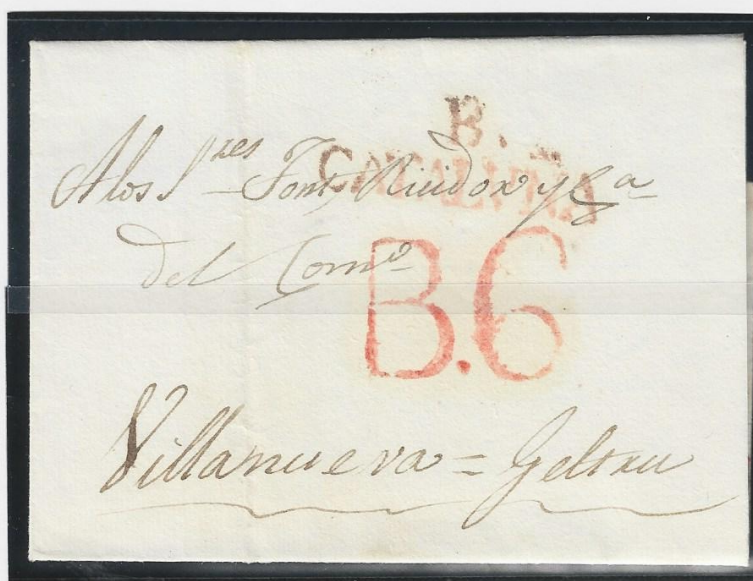 B.
CATALUÑA
A los S.res Font, Riudor y C.a
del Com.o
B.6
Villanueva = Geltru